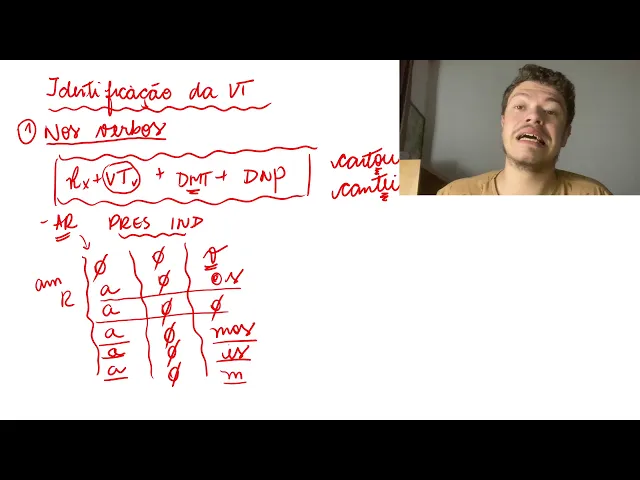 Identificação da VT
① Nos verbos
Rx + VTv + DMT + DNP
cantou
cantei
- AR PRES IND
am R
∅ ∅ o
a ∅ s
a ∅ ∅
a ∅ mos
a ∅ is
a ∅ m